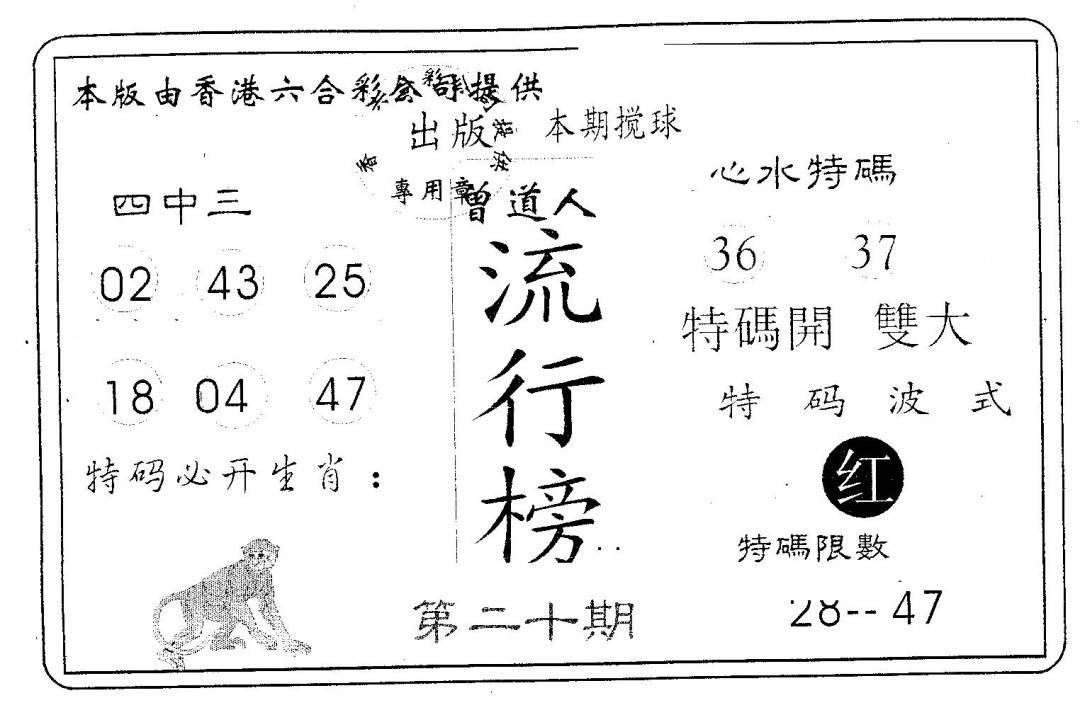 本版由香港六合彩公司提供
出版 本期搅球
專用章
四中三
02 43 25
18 04 47
特码必开生肖：
曾道人
流行榜
第二十期
心水特碼
36 37
特碼開 雙大
特码波式
红
特碼限數
28--47